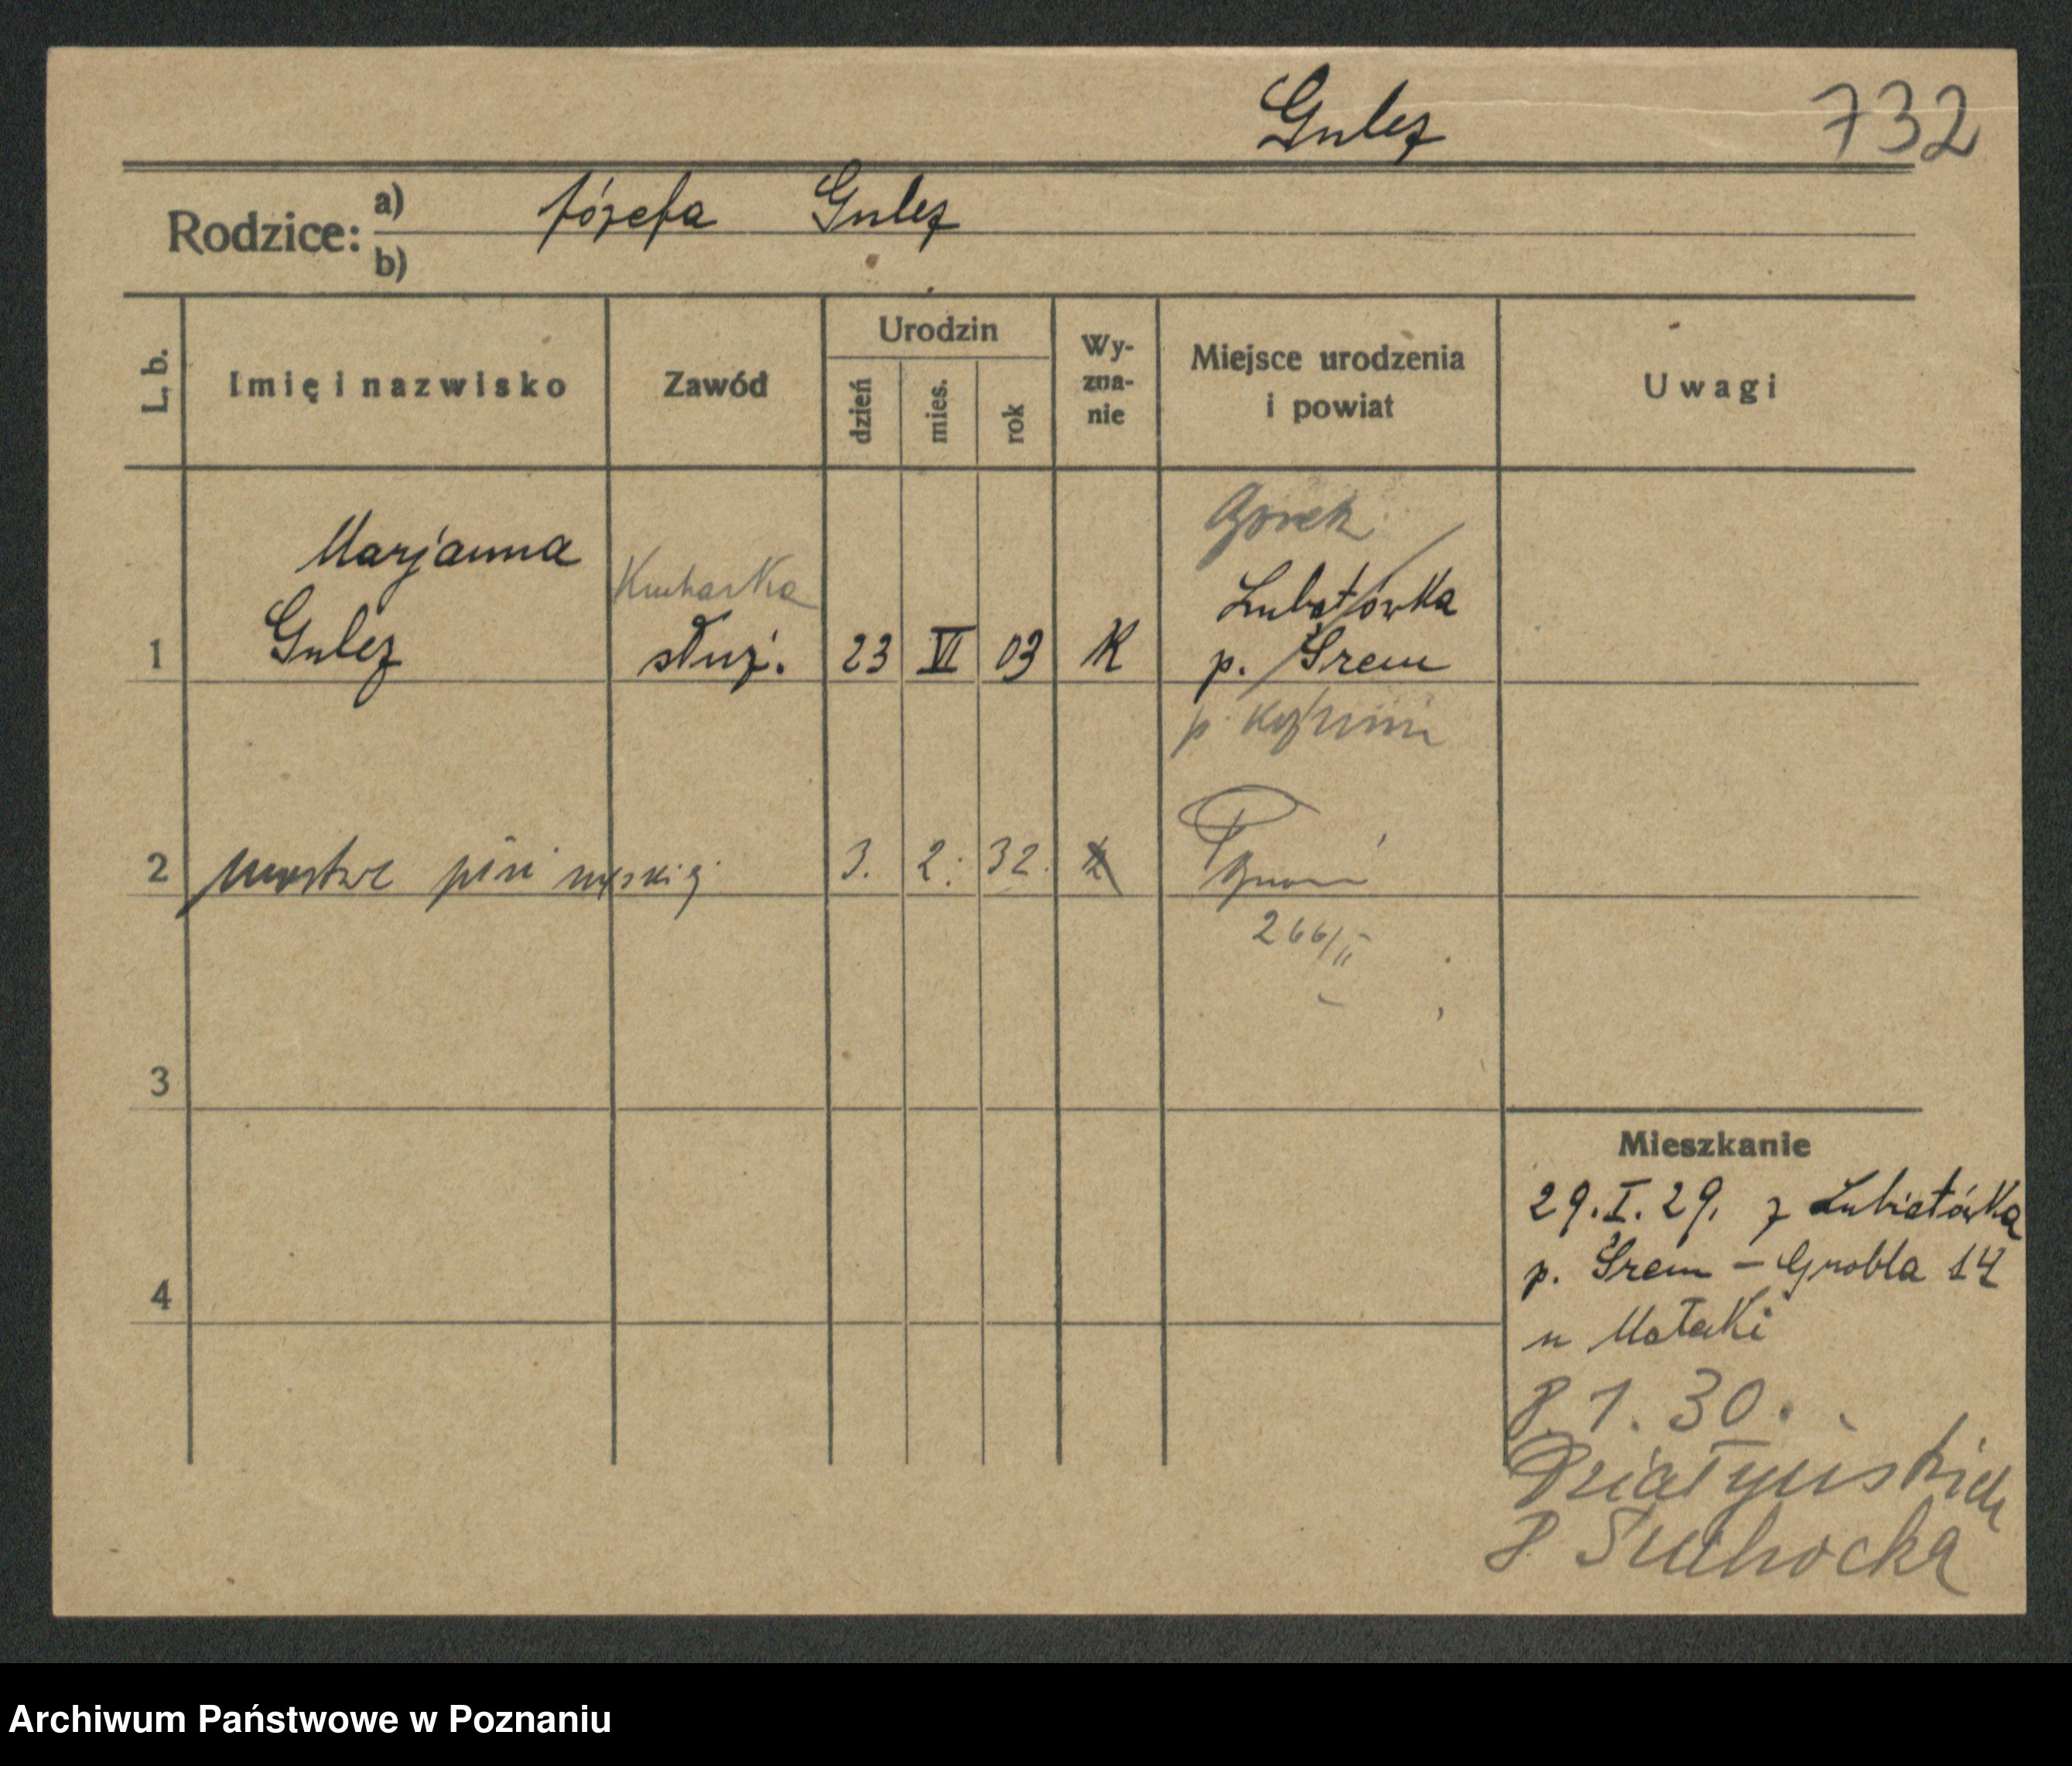 Gulcz 732
Rodzice: a) Józefa Gulcz
b)
L. b. Imię i nazwisko Zawód Urodzin dzień mies. rok Wy-zna-nie Miejsce urodzenia i powiat Uwagi
Marjanna Kucharka
Lubiatówka
1 Gulcz służ. 23 VI 03 K p. Śrem
p.
2 martwe płci męskiej 3. 2. 32. Poznań
266/II
3
Mieszkanie
29.I.29. z Lubiatówka
p. Śrem – Grobla 14
4
u Mataki
8.1.30.
Działyńskich
8 Suchocka
Archiwum Państwowe w Poznaniu